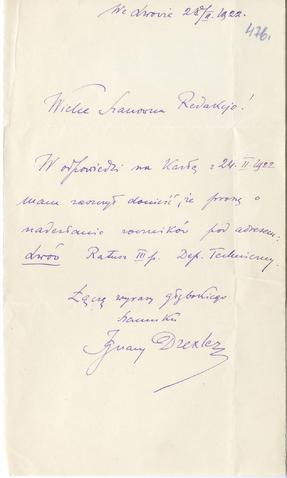 We Lwowie 28/II. 1922.
476.
Wielce Szanowna Redakcjo!
W odpowiedzi na Kartę z 24.II.1922
mam zaszczyt donieść, że proszę o
nadesłanie roczników pod adresem:
Lwów Ratusz III p. Dep. Techniczny.
Łączę wyrazy głębokiego
szacunku
Ignacy Drexler